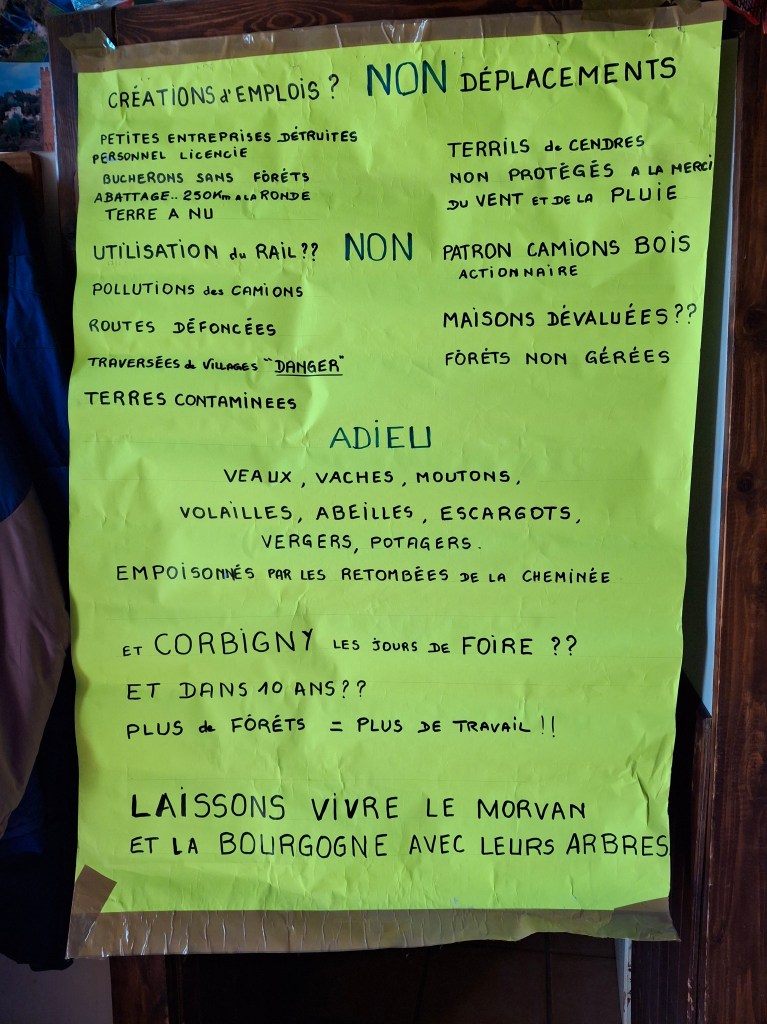 CRÉATIONS d'EMPLOIS ? NON DÉPLACEMENTS
PETITES ENTREPRISES DÉTRUITES
PERSONNEL LICENCIE
BUCHERONS SANS FÒRÉTS
ABATTAGE.. 250Km A LA RONDE
TERRE A NU
TERRILS de CENDRES
NON PROTÉGÉS A LA MERCI
DU VENT ET DE LA PLUIE
UTILISATION du RAIL ?? NON PATRON CAMIONS BOIS
ACTIONNAIRE
POLLUTIONS des CAMIONS
ROUTES DÉFONCÉES
TRAVERSÉES de VILLAGES "DANGER"
TERRES CONTAMINEES
MAISONS DÉVALUÉES ??
FÒRÉTS NON GÉRÉES
ADIEU
VEAUX, VACHES, MOUTONS,
VOLAILLES, ABEILLES, ESCARGOTS,
VERGERS, POTAGERS.
EMPOISONNÉS PAR LES RETOMBÉES DE LA CHEMINÉE
ET CORBIGNY LES JOURS DE FOIRE ??
ET DANS 10 ANS ??
PLUS de FÒRÉTS = PLUS DE TRAVAIL !!
LAISSONS VIVRE LE MORVAN
ET LA BOURGOGNE AVEC LEURS ARBRES